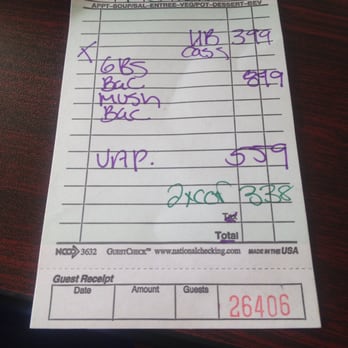 APPT-SOUP/SAL-ENTREE-VEG/POT-DESSERT-BEV
HB 399
X Cass
GBS
Bac 899
Mush
Bac
559
2xcof 338
Tax
Total
NCCO 3632 GUESTCHECK™ www.nationalchecking.com MADE IN THE USA
Guest Receipt
Date Amount Guests
26406